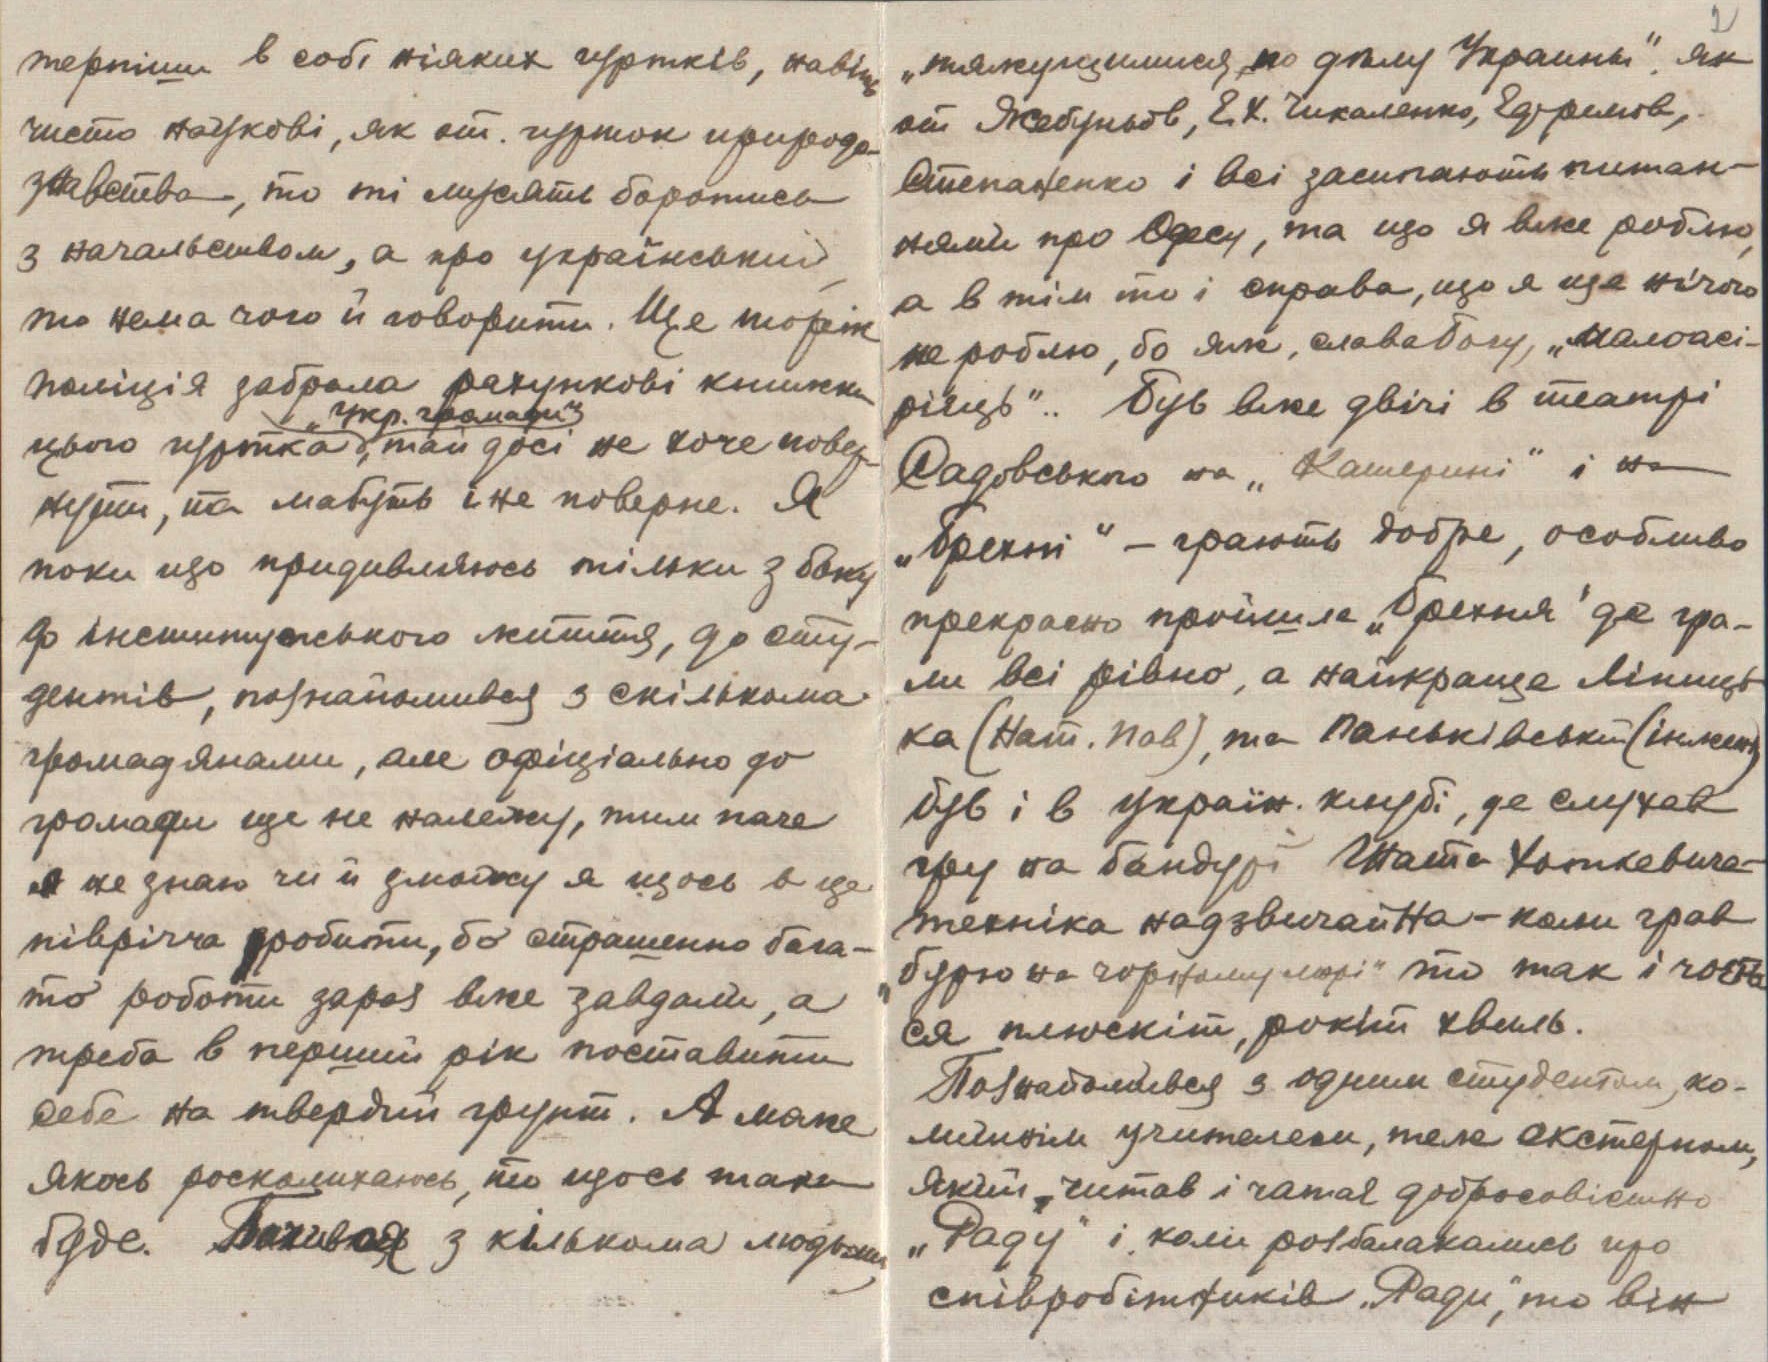 терпіти в собі ніяких гуртків, навіть
чисто наукові, як от. гурток природо-
знавства, то ті мусять боротись
з начальством, а про український,
то нема чого й говорити. Ще торік
поліція забрала рахункові книжки
„Укр. громади"
цього гуртка, та й досі не хоче повер-
нути, та мабуть і не поверне. Я
поки що придивляюсь тільки з боку
до інститутського життя, до сту-
дентів, познайомився з скількома
громадянами, але офіціально до
громади ще не належу, тим паче
я не знаю чи й зможу я щось в це
півріччя робити, бо страшенно бага-
то роботи зараз вже завдали, а
треба в перший рік поставити
себе на твердий грунт. А може
якось росколихаюсь, то щось таки
буде. Бачився з кількома людьми,
2
„тяжущимися по дѣлу Украины". як
от Жебуньов, Е.Х. Чикаленко, Ефремов,
Степаненко і всі засипають питан-
нями про Одесу, та що я вже роблю,
а в тім то і справа, що я ще нічого
не роблю, бо як, слава Богу, „малоасі-
рієць".. Був вже двічі в театрі
Садовського на „Катерині" і на
„Брехні" – грають добре, особливо
прекрасно пройшла „Брехня" де гра-
ли всі рівно, а найкраще Ліниць-
ка (Нат. Пав), та Паньківський (інжен)
був і в україн. клубі, де слухав
гру на бандурі Гната Хоткевича –
техніка надзвичайна – коли грав
„бурю на чорному морі" то так і чоеть
ся плюскіт, рокіт хвиль.
Познайомився з одним студентом, ко-
лишнім учителем, теж екстерном,
який читав і читає добросовістно
„Раду" і коли розбалакались про
співробітників „Ради", то він